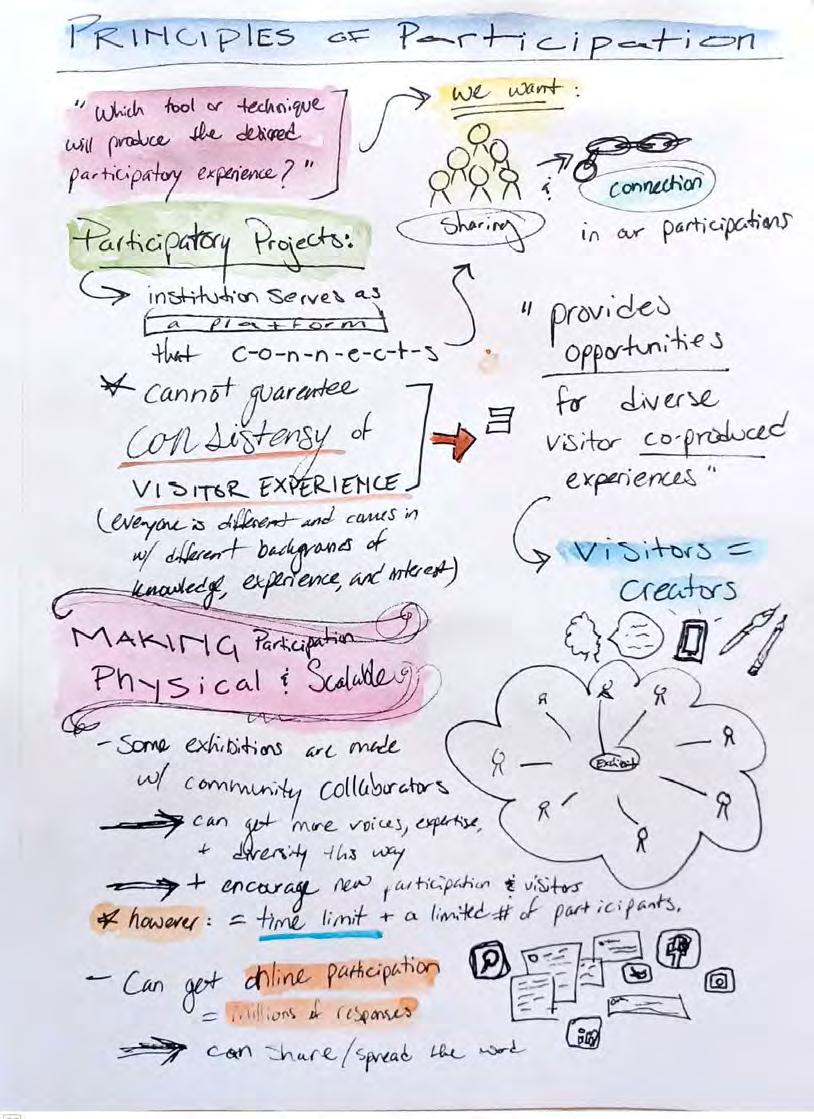 PRINCIPLES OF Participation
"Which tool or technique
will produce the desired
participatory experience?"
we want:
sharing
&
connection
in our participations
Participatory Projects:
institution serves as
a platform
that c-o-n-n-e-c-t-s
* cannot guarentee
consistensy of
VISITOR EXPERIENCE
(everyone is different and comes in
w/ different backgrounds of
knowledge, experience, and interest)
"provides
opportunities
for diverse
visitor co-produced
experiences"
Visitors =
Creators
Exhibit
MAKING Participation
Physical & Scalable
- Some exhibitions are made
w/ community collaborators
can get more voices, expertise,
+ diversity this way
+ encourage new participation & visitors
* however: = time limit + a limited # of participants.
- Can get online participation
= millions of responses
can share/spread the word
in